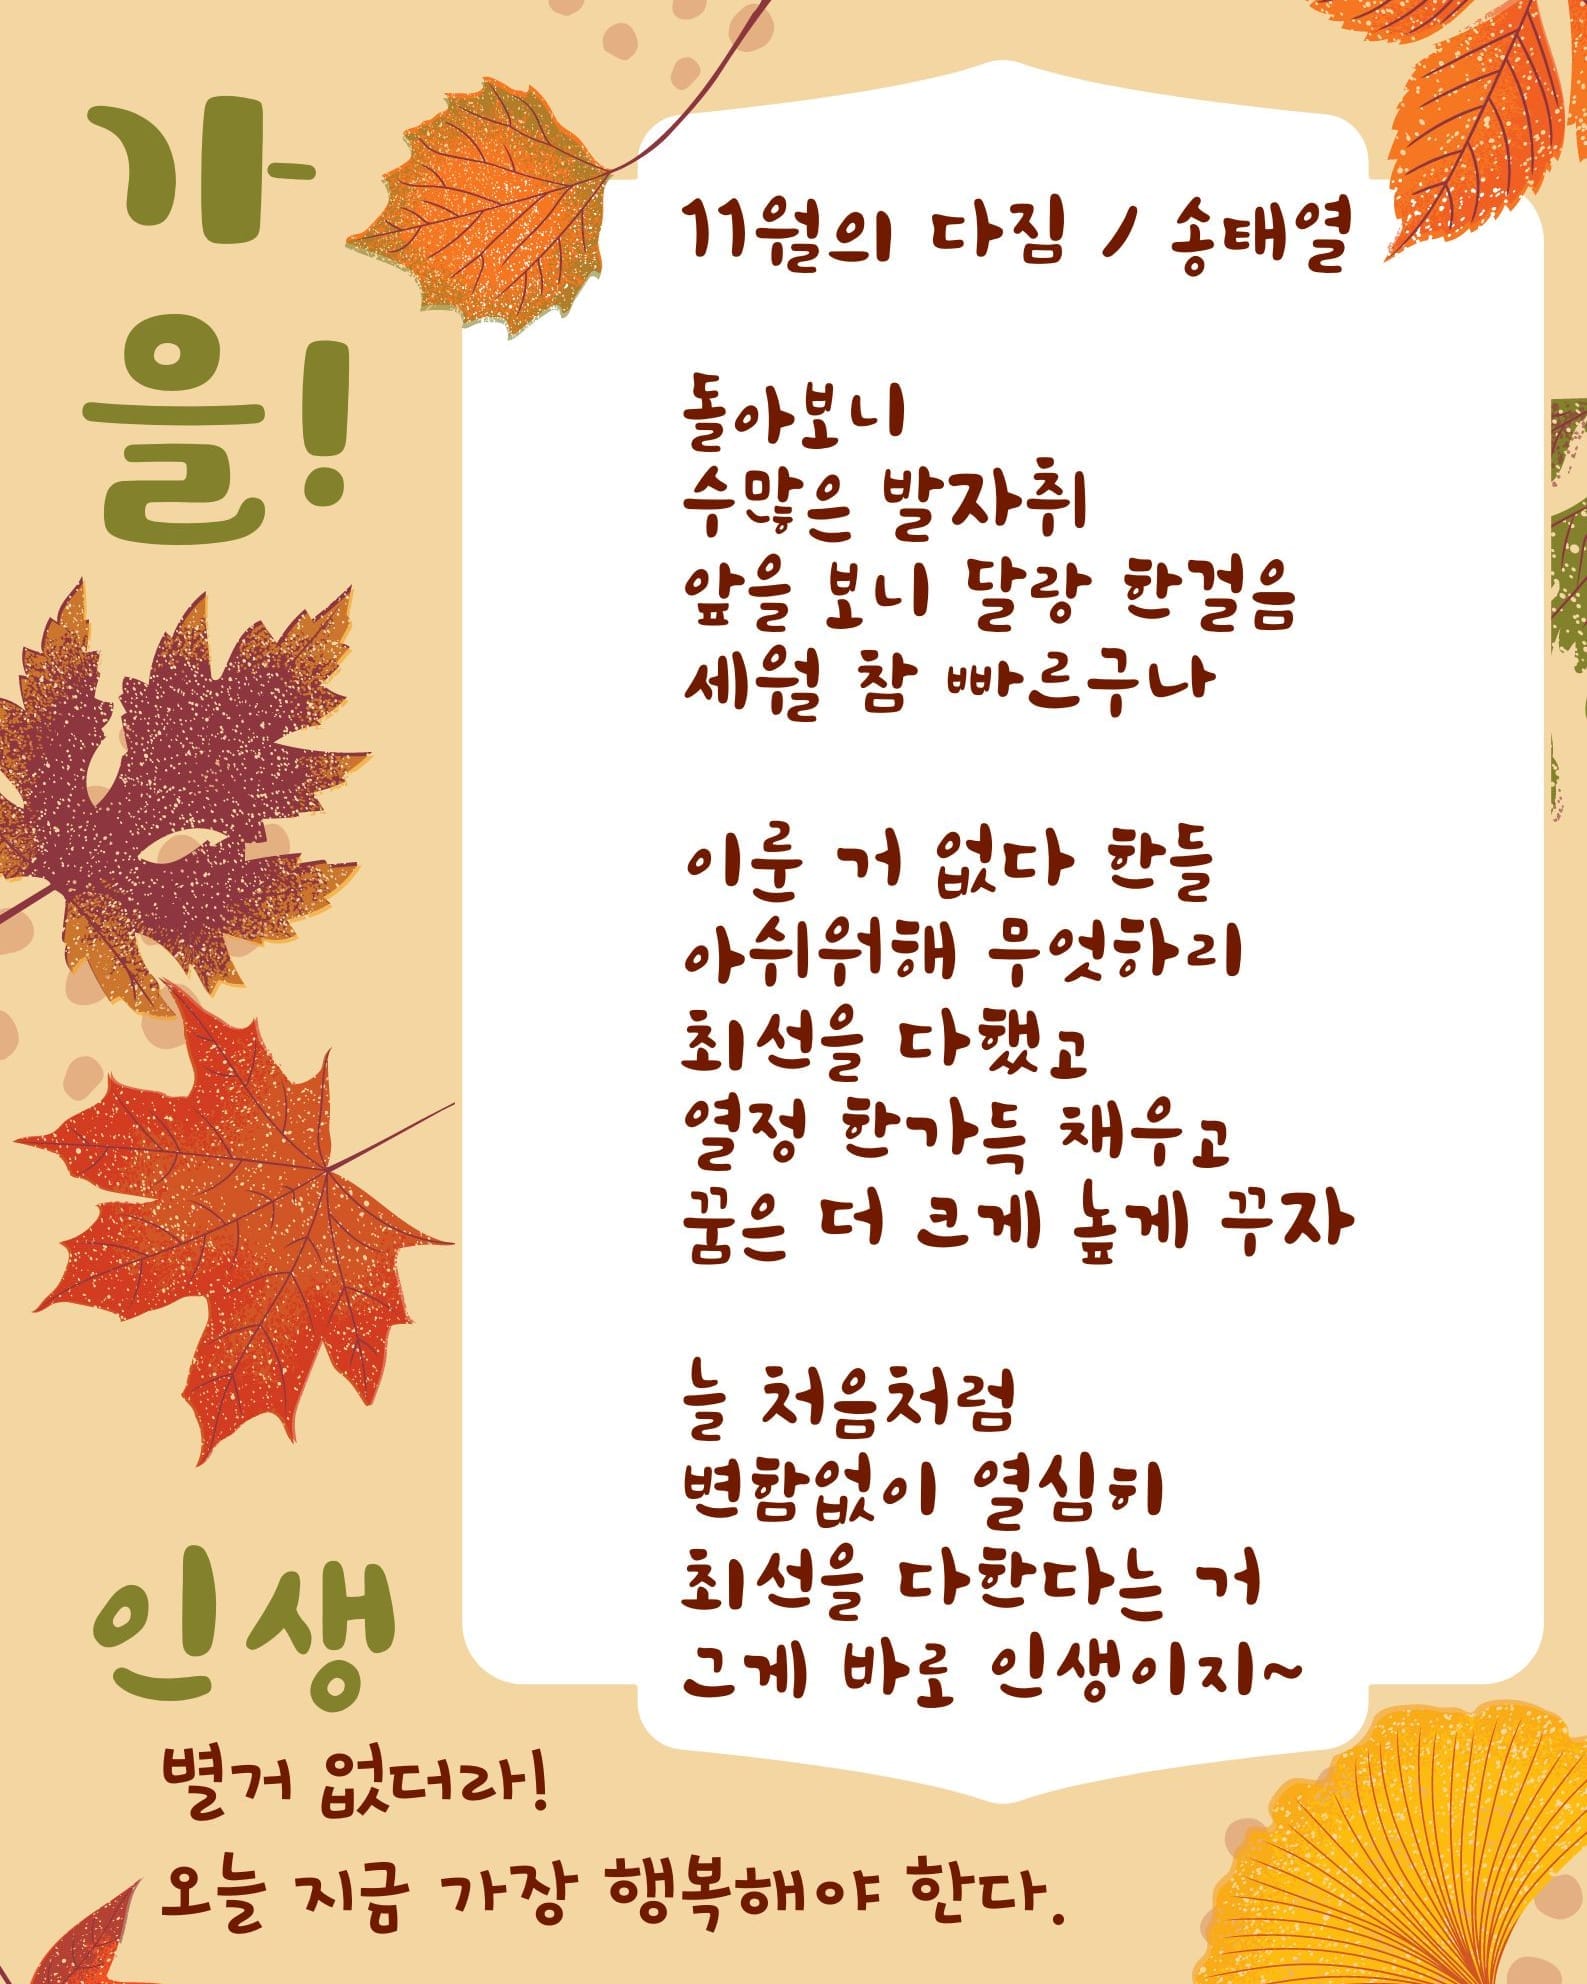 가
을!
11월의 다짐 / 송태열
돌아보니
수많은 발자취
앞을 보니 달랑 한걸음
세월 참 빠르구나
이룬 거 없다 한들
아쉬워해 무엇하리
최선을 다했고
열정 한가득 채우고
꿈은 더 크게 높게 꾸자
늘 처음처럼
변함없이 열심히
최선을 다한다는 거
그게 바로 인생이지~
인생
별거 없더라!
오늘 지금 가장 행복해야 한다.